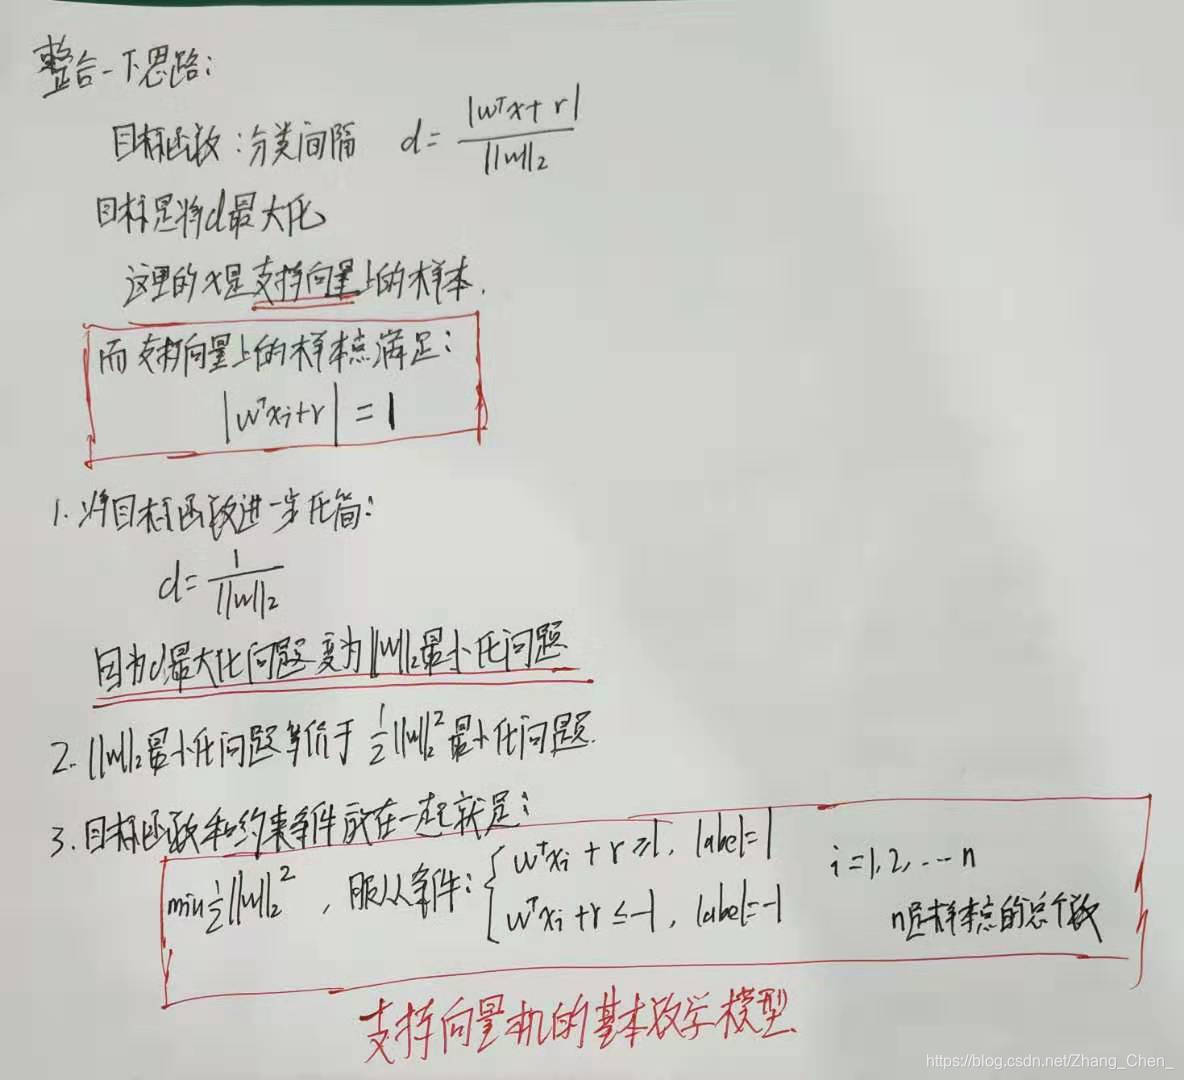 整合一下思路:
目标函数:分类间隔 d = |wᵀx+r| / ||w||₂
目标是将d最大化
这里的x是支持向量上的样本.
而支持向量上的样本点满足:
|wᵀxᵢ+r| = 1
1. 将目标函数进一步化简:
d = 1 / ||w||₂
因为d最大化问题变为||w||₂最小化问题
2. ||w||₂最小化问题等价于 ½||w||₂² 最小化问题.
3. 目标函数和约束条件放在一起就是:
min ½||w||₂² , 服从条件: { wᵀxᵢ + r ≥ 1, label=1 i=1,2,…n
wᵀxᵢ + r ≤ -1, label=-1 n是样本点的总个数
支持向量机的基本数学模型
https://blog.csdn.net/Zhang_Chen_